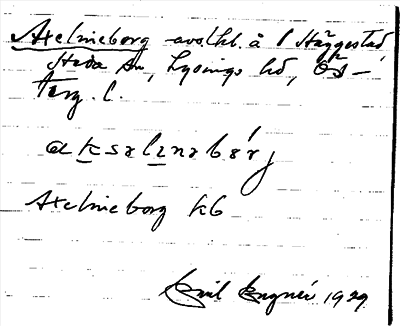 Axelineborg avs.lht. å 1 Häggestad
Heda sn, Lysings hd, Ös-
terg. l.
aksəlinəbörj
Axelineborg kb
Emil Engnér 1929